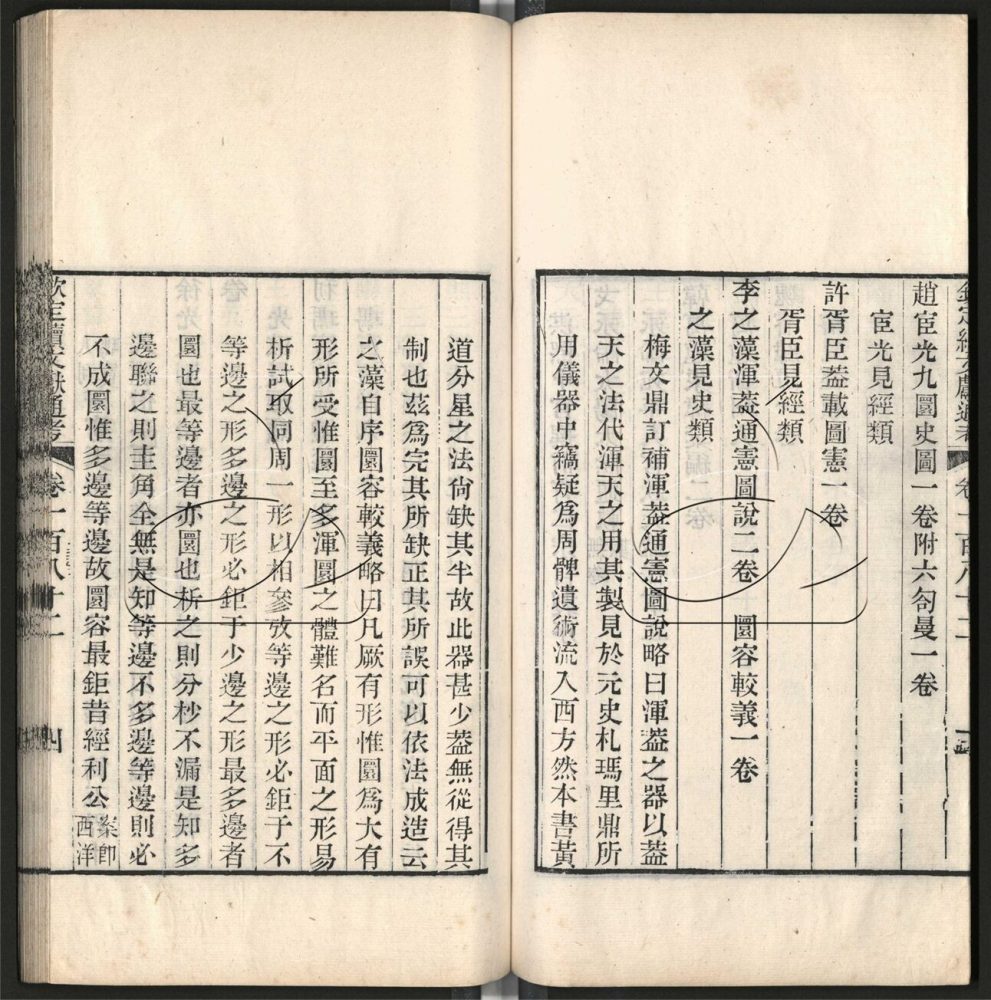 趙宧光九圜史圖一卷附六匌曼一卷
宧光見經類
許胥臣葢載圖憲一卷
胥臣見經類
李之藻渾葢通憲圖說二卷　圜容較義一卷
之藻見史類
梅文鼎訂補渾葢通憲圖說略曰渾葢之器以葢
天之法代渾天之用其製見於元史札瑪里鼎所
用儀器中竊疑爲周髀遺術流入西方然本書黃
道分星之法尙缺其半故此器甚少葢無從得其
制也茲爲完其所缺正其所誤可以依法成造云
之藻自序圜容較義略曰凡厥有形惟圜爲大有
形所受惟圜至多渾圜之體難名而平面之形易
析試取同周一形以相參攷等邊之形必鉅于不
等邊之形多邊之形必鉅于少邊之形最多邊者
圜也最等邊者亦圜也析之則分杪不漏是知多
邊聯之則圭角全無是知等邊不多邊等邊則必
不成圜惟多邊等邊故圜容最鉅昔經利公案卽西洋
欽定續文獻通考　卷一百八十二　四